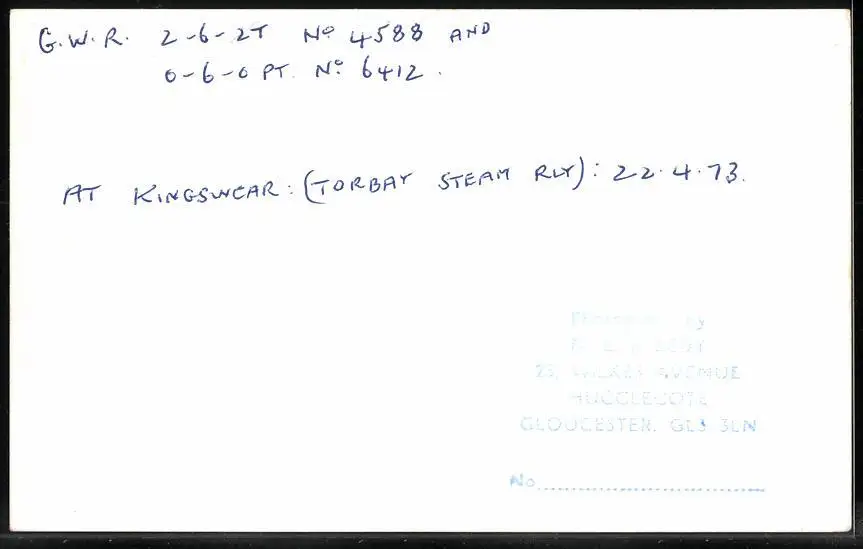 G.W.R. 2-6-2T Nº 4588 AND
0-6-0 PT. Nº 6412.
AT KINGSWEAR: (TORBAY STEAM RLY): 22.4.73.
AVENUE
HUCCLECOTE
GLOUCESTER. GL3 3LN
No.